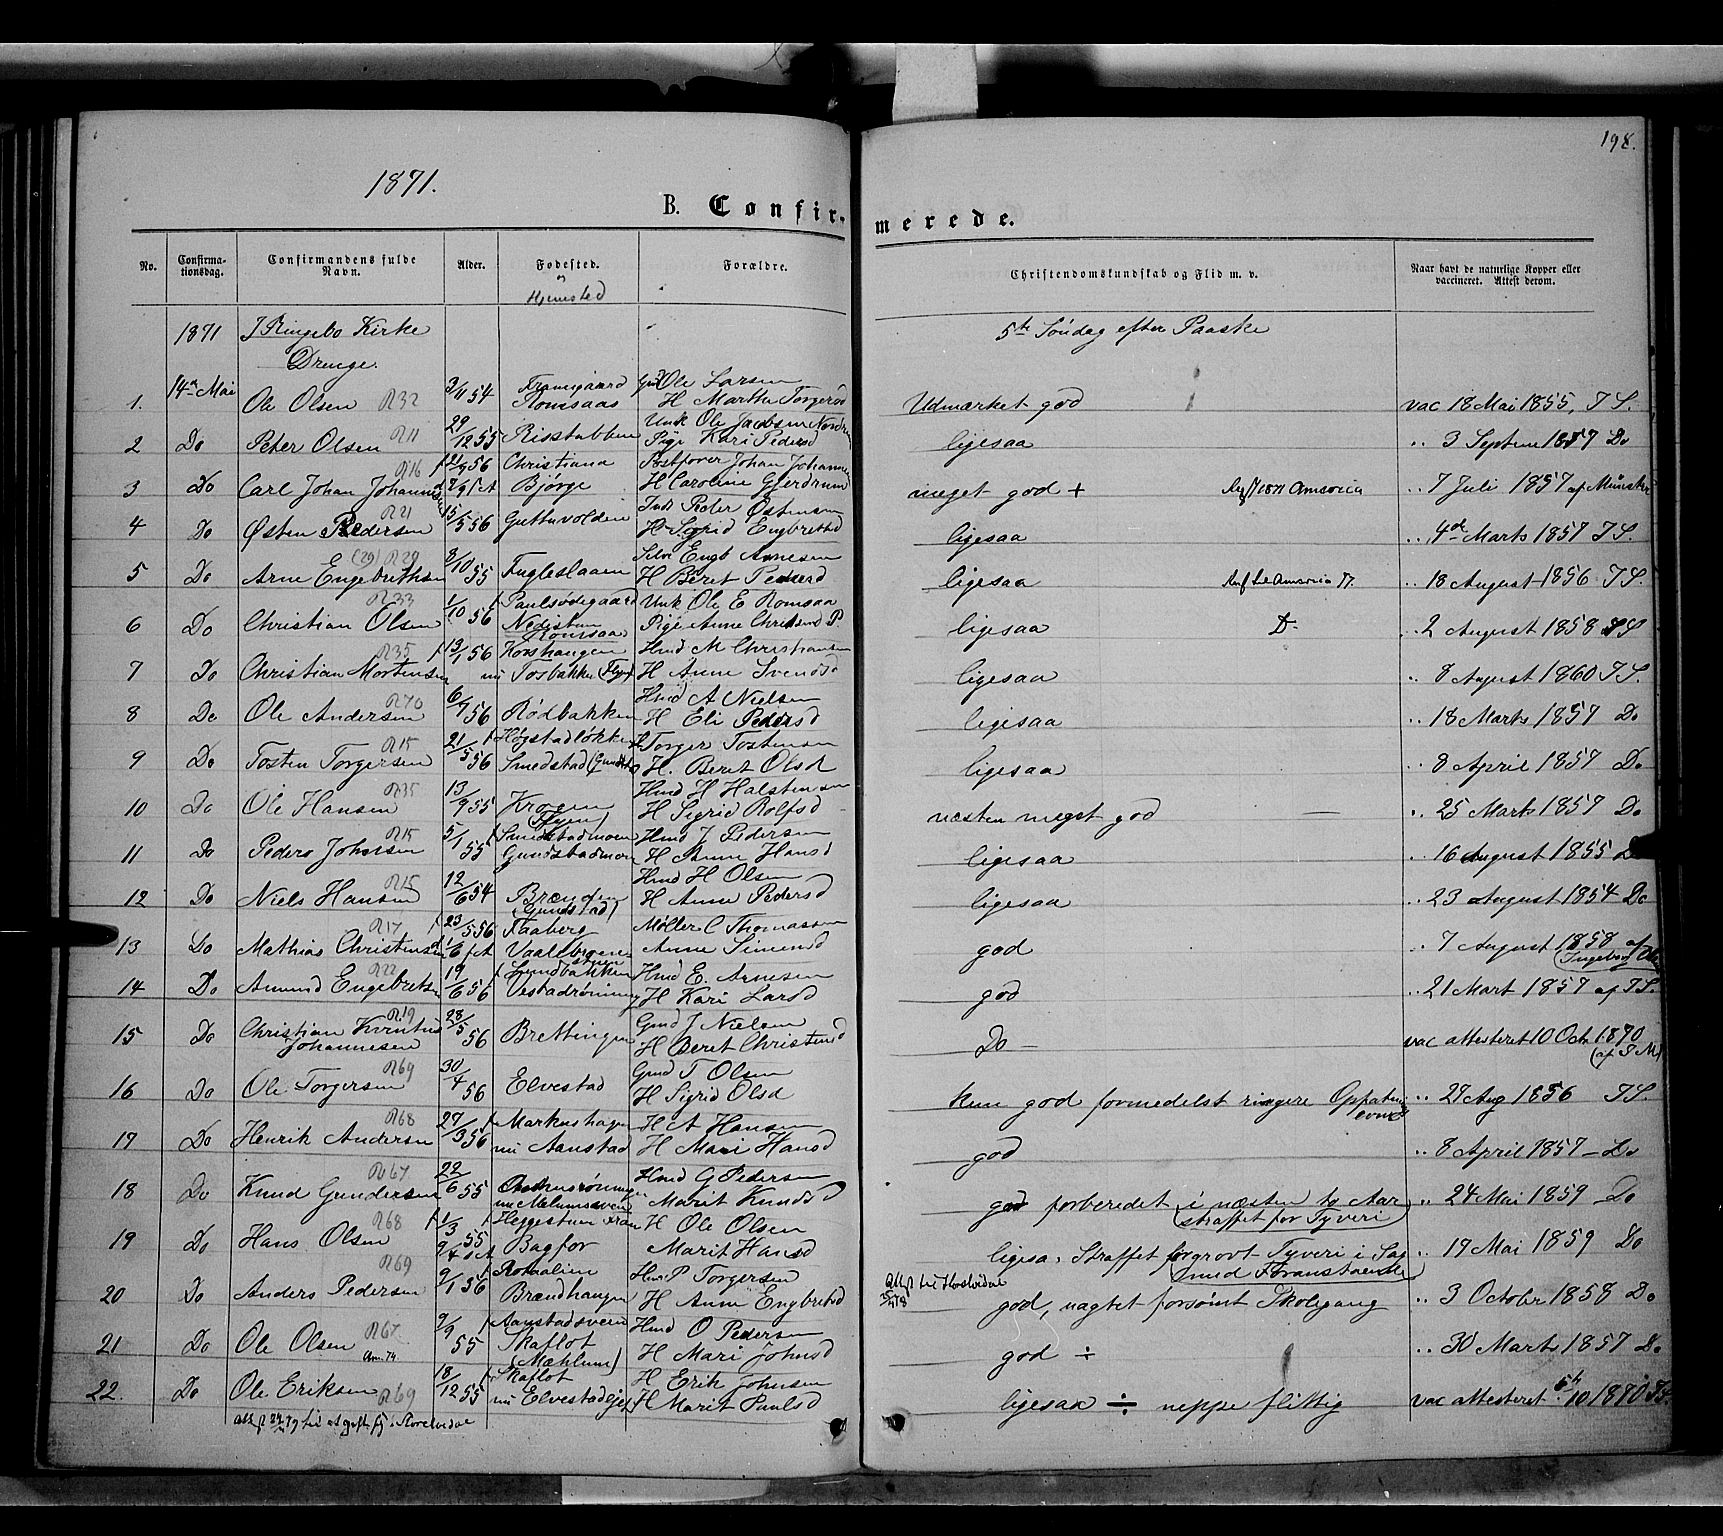 198.
1871.
B. Confir-
merede.
No.
Confirma-
tionsdag.
Confirmandens fulde
Navn.
Alder.
Fødested.
og
Hjemsted
Forældre.
Christendomskundskab og Flid m. v.
Naar havt de naturlige Kopper eller
vaccineret. Attest derom.
1871 I Ringebo Kirke
5te Søndag efter Paaske
Drenge.
14de Mai
Framigaard Gmd Ole Larsen
1. Ole Olsen R32 3/11 54 Romsaas H Marthe Torgersd Udmærket god vac 18 Mai 1855, T S.
Unk Ole Jacobsen
2 Do Peter Olsen R11 29/12 55 Risstubben Pige Kari Pedersd ligesaa .. 3 Septem 1857 Do
R16 f 56 Christiana Postfører Johan
3 Do Carl Johan Bjørge H Caroline Gjerdrum meget god + .. 7 Juli 1857 af Münster
R21 Inds Peder Østensen
4 Do Østen Pedersen 15/5 56 Guttuvolden H Sigrid Engbretsd ligesaa .. 4de Marts 1857 T S.
(29) R29 Engb Arnesen
5 Do Arne Engebrethsen 8/10 55 Fugleslaaen H Beret Pedersd ligesaa .. 18 August 1856 T S.
R33 f Paulsødegaard Unk Ole E Romsaa
6 Do Christian Olsen 1/10 56 Nedistun Pige Anne ligesaa D- .. 2 August 1858 T S
Romsaa
R35 f Korshaugen Hmd M Christiansen
7 Do Christian Mortensen 13/1 56 nu Tosbakke H Anne Svendsd ligesaa .. 8 August 1860 T S.
R70 Hmd A Nielsen
8 Do Ole Andersen 6/7 56 Rødbakken H Eli Pedersd ligesaa .. 18 Marts 1857 Do
R15 f Høgstadløkken Torger Tostensen
9 Do Tosten Torgersen 21/5 56 Smedstad H. Beret Olsd ligesaa .. 8 April 1857 Do
R35 Hmd H Halstensen
10 Do Ole Hansen 13/9 55 Krogen H Sigrid Rolfsd næsten meget god — .. 25 Marts 1857 Do
R15 f Smedstadmoen Hmd J Pedersen
11 Do Peder Johnsen 5/1 55 Gundstadmoen H Anne Hansd ligesaa .. 16 August 1855 Do
R15 Hmd H Olsen
12 Do Niels Hansen 12/6 54 Brænden H Anne Pedersd ligesaa .. 23 August 1854 Do
(Gundstad)
R17 f 23/5 56 Faaberg Møller C Thomassen
13 Do Mathias Christensen Anne Simensd god .. 7 August 1858 af
R22 f Lundbakken Hmd E. Arnesen
14 Do Amund Engebretsen 19/6 56 Vestadrøning H Kari Larsd god .. 21 Mart 1857 af T S.
R19 Gmd J Nielsen
15 Do Christian Kventus 28/5 56 Brettingen H Beret Christensd Do — vac attesteret 10 Oct 1870
Johannesen
R69 Gmd T Olsen
16 Do Ole Torgersen 30/4 56 Elvestad H Sigrid Olsd kun god formedelst ringere .. 27 Aug 1856 T S.
R68 f Markushagen H A Hansen
17 Do Henrik Andersen 27/3 56 nu Aanstad H Mari Hansd god .. 8 April 1857 — Do
R67 Hmd G Pedersen
18 Do Knud Gundersen 22/6 55 Marit Knudsd god forberedet i næsten to Aar .. 24 Mai 1859 Do
(straffet for Tyveri)
R68 f H Ole Olsen
19 Do Hans Olsen 1/3 55 Bagfor Marit Hansd ligesa. Straffet for grovt Tyveri i Sag .. 19 Mai 1859 Do
(med Foranstaaende)
R69 Romaalien P Torgersen
20 Do Anders Pedersen 9/1 56 Brændhaugen H Anne Engbretsd god, uagtet forsømt Skolegang .. 3 October 1858 Do
R67 f Aanstadsveen Hmd O Pedersen
21 Do Ole Olsen 9/9 55 Skaflot H Mari Johnsd god ÷ .. 30 Marts 1857 Do
Am. 74. (Mæhlum)
f Skaflot H Erik Johnsen
22. Do Ole Eriksen R69 18/12 55 nu H Marit Paulsd ligesaa ÷ neppe flittig vac attesteret